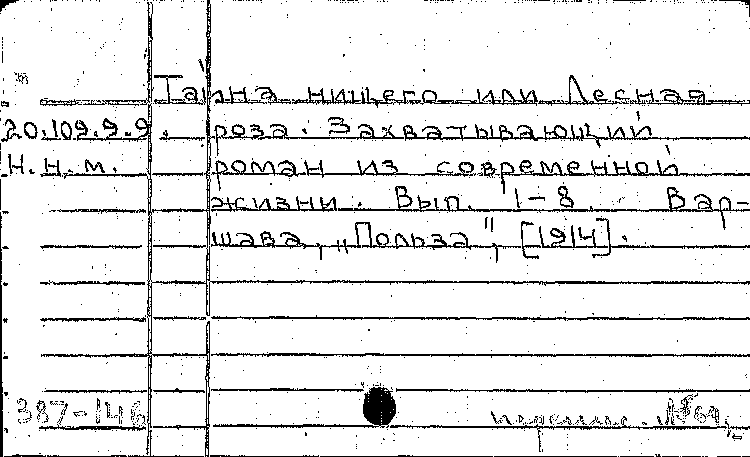 Тайна нищего или Лесная
20.109.9.9. роза. Захватывающий
Н.Н.М. роман из современной
жизни. Вып. 1-8. Вар-
шава, „Польза", [1914].
387-146